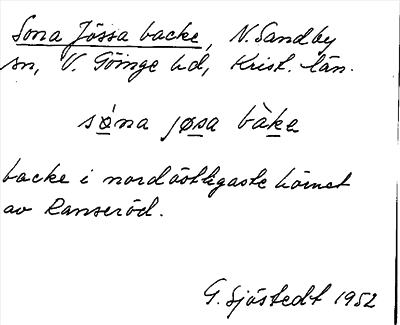 Sona Jössa backe, N. Sandby
sn, V. Göinge hd, Krist. län.
sǿna jøsa bàke
backe i nordöstligaste hörnet
av Ranseröd.
G. Sjöstedt 1952